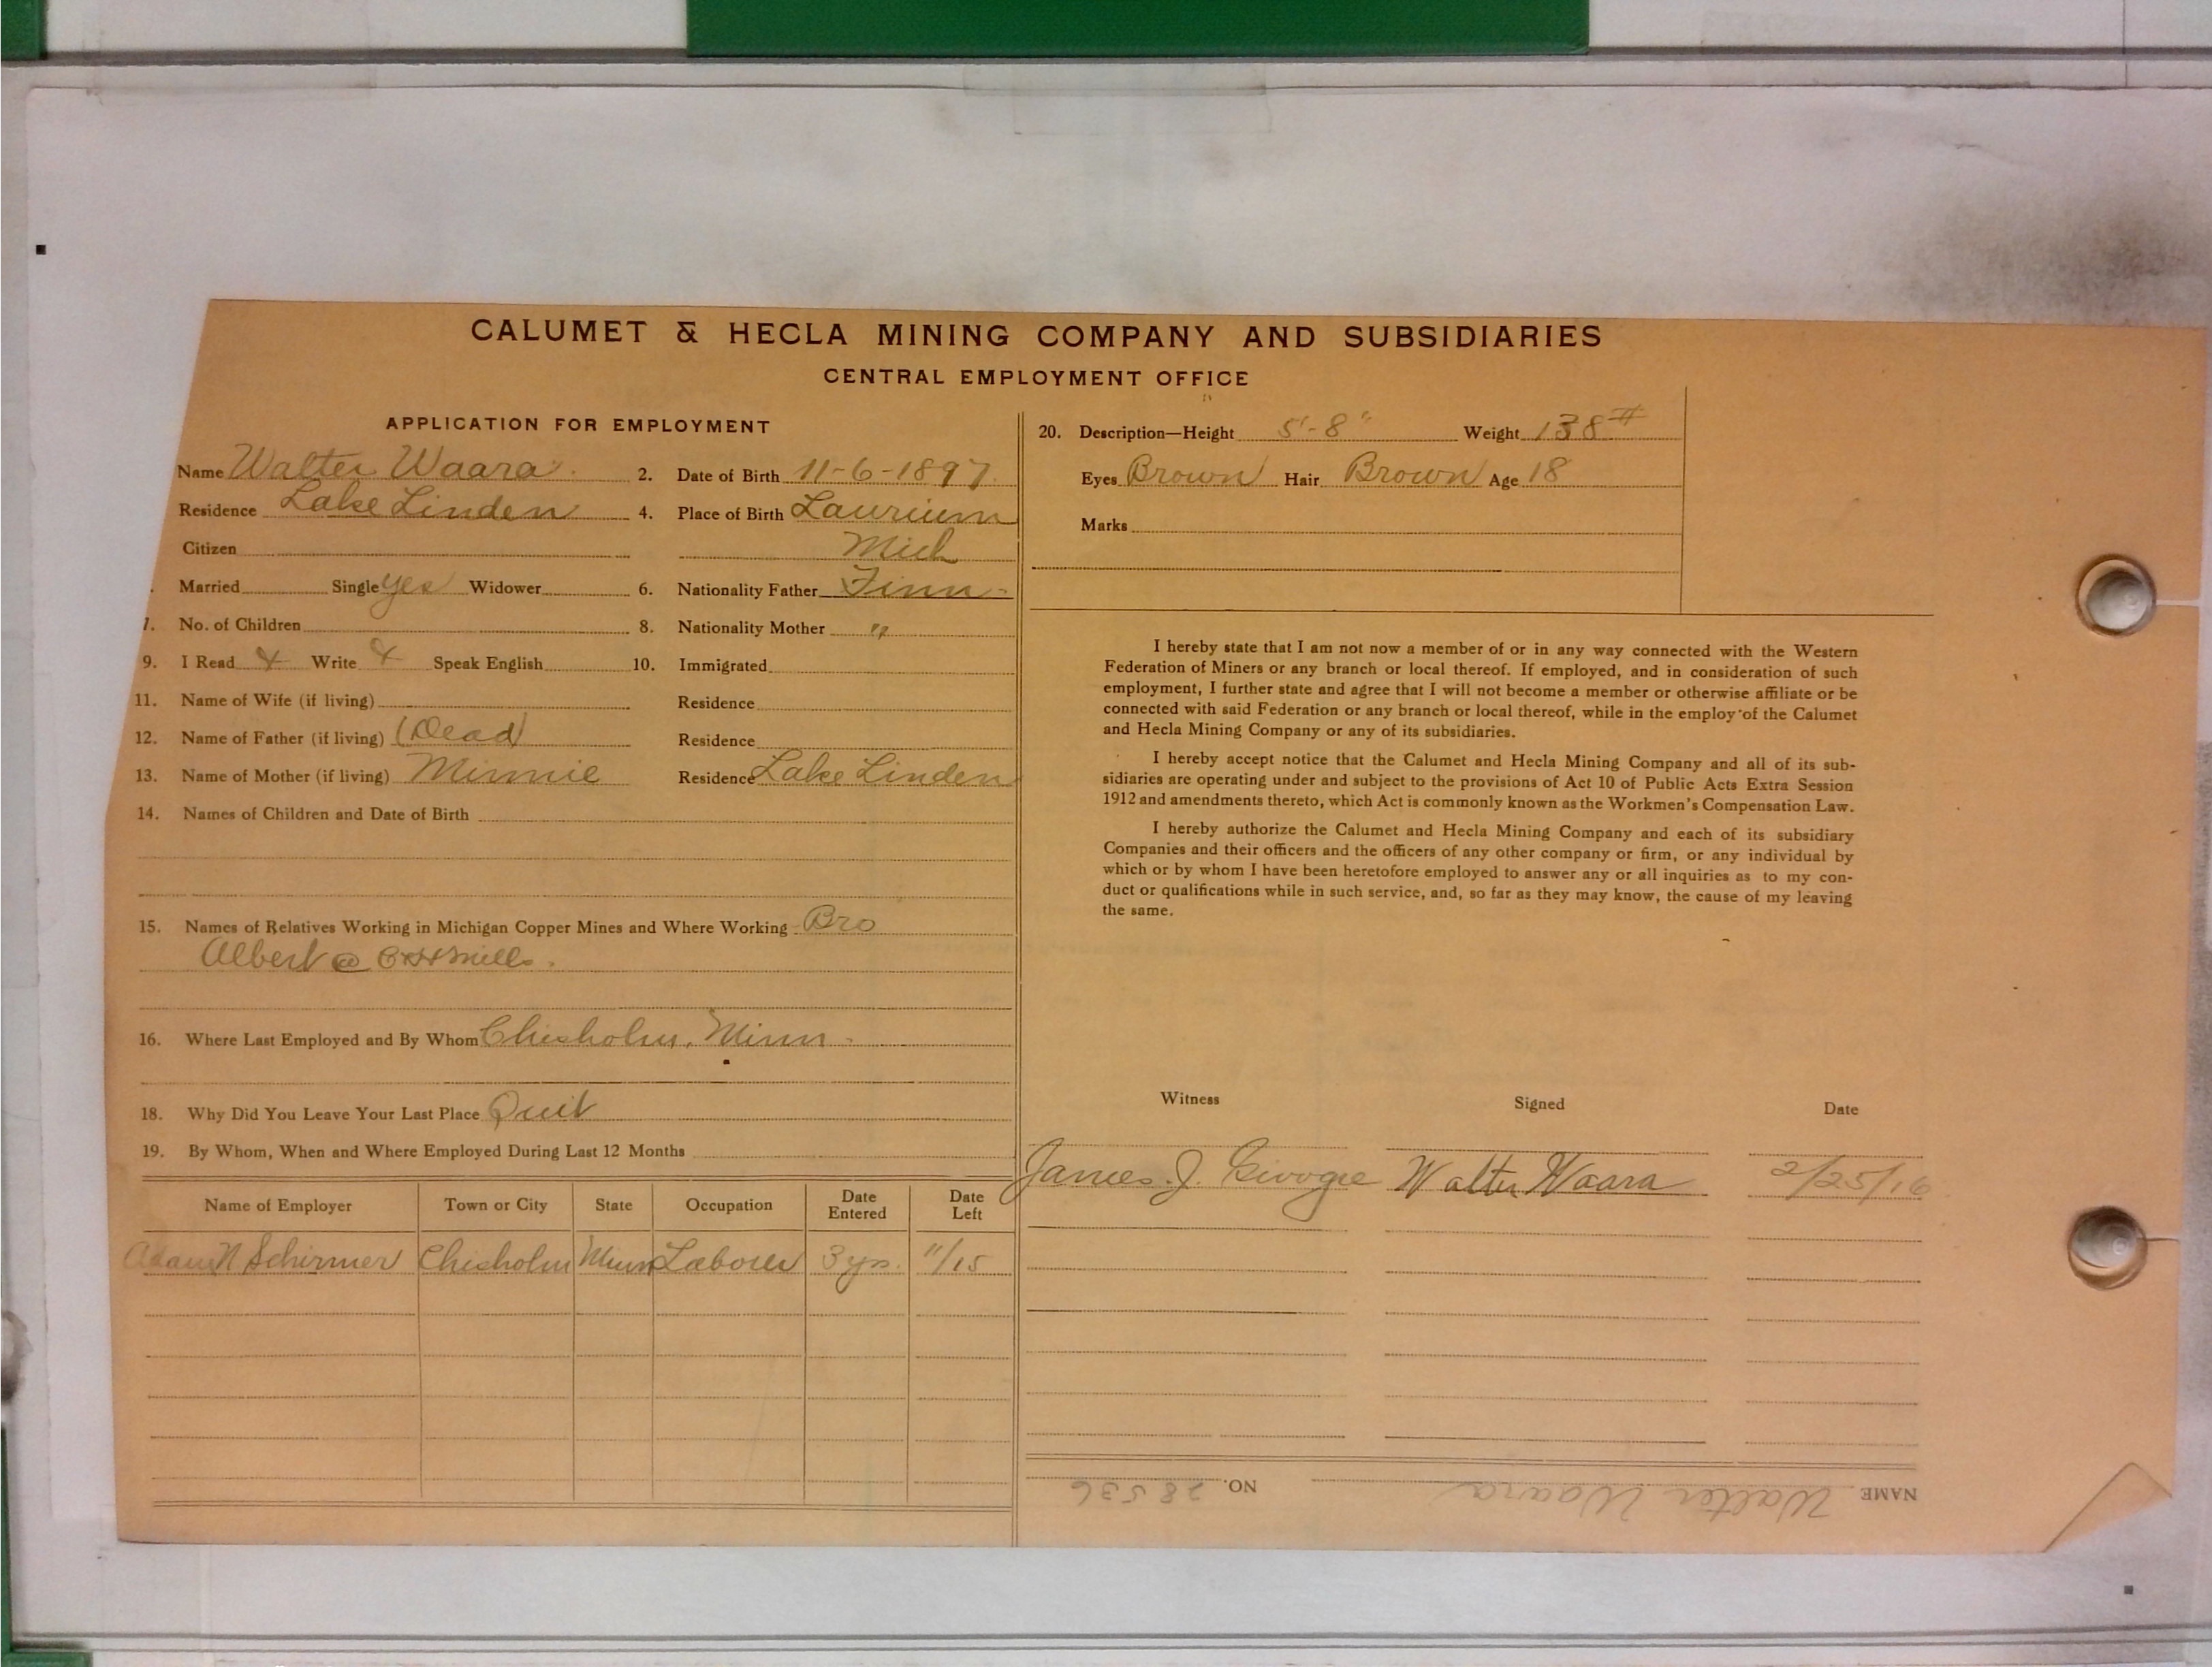 CALUMET & HECLA MINING COMPANY AND SUBSIDIARIES
CENTRAL EMPLOYMENT OFFICE
APPLICATION FOR EMPLOYMENT
Name Walter Waara. 2. Date of Birth 11-6-1897.
Residence Lake Linden 4. Place of Birth Laurium
Citizen Mich
Married Single yes Widower 6. Nationality Father Finn-
7. No. of Children 8. Nationality Mother "
9. I Read Write Speak English 10. Immigrated
11. Name of Wife (if living) Residence
12. Name of Father (if living) (Dead) Residence
13. Name of Mother (if living) Minnie Residence Lake Linden
14. Names of Children and Date of Birth
15. Names of Relatives Working in Michigan Copper Mines and Where Working Bro
Albert @ C&H Mills.
16. Where Last Employed and By Whom Chisholm, Minn.
18. Why Did You Leave Your Last Place Quit
19. By Whom, When and Where Employed During Last 12 Months
Name of Employer Town or City State Occupation Date Entered Date Left
Schirmer Chisholm Minn Laborer 3 yrs. 11/15
20. Description—Height 5'-8" Weight 138#
Eyes Brown Hair Brown Age 18
Marks
I hereby state that I am not now a member of or in any way connected with the Western
Federation of Miners or any branch or local thereof. If employed, and in consideration of such
employment, I further state and agree that I will not become a member or otherwise affiliate or be
connected with said Federation or any branch or local thereof, while in the employ of the Calumet
and Hecla Mining Company or any of its subsidiaries.
I hereby accept notice that the Calumet and Hecla Mining Company and all of its sub-
sidiaries are operating under and subject to the provisions of Act 10 of Public Acts Extra Session
1912 and amendments thereto, which Act is commonly known as the Workmen's Compensation Law.
I hereby authorize the Calumet and Hecla Mining Company and each of its subsidiary
Companies and their officers and the officers of any other company or firm, or any individual by
which or by whom I have been heretofore employed to answer any or all inquiries as to my con-
duct or qualifications while in such service, and, so far as they may know, the cause of my leaving
the same.
Witness Signed Date
James. J. Walter Waara 2/25/16
NAME Walter Waara NO. 28536